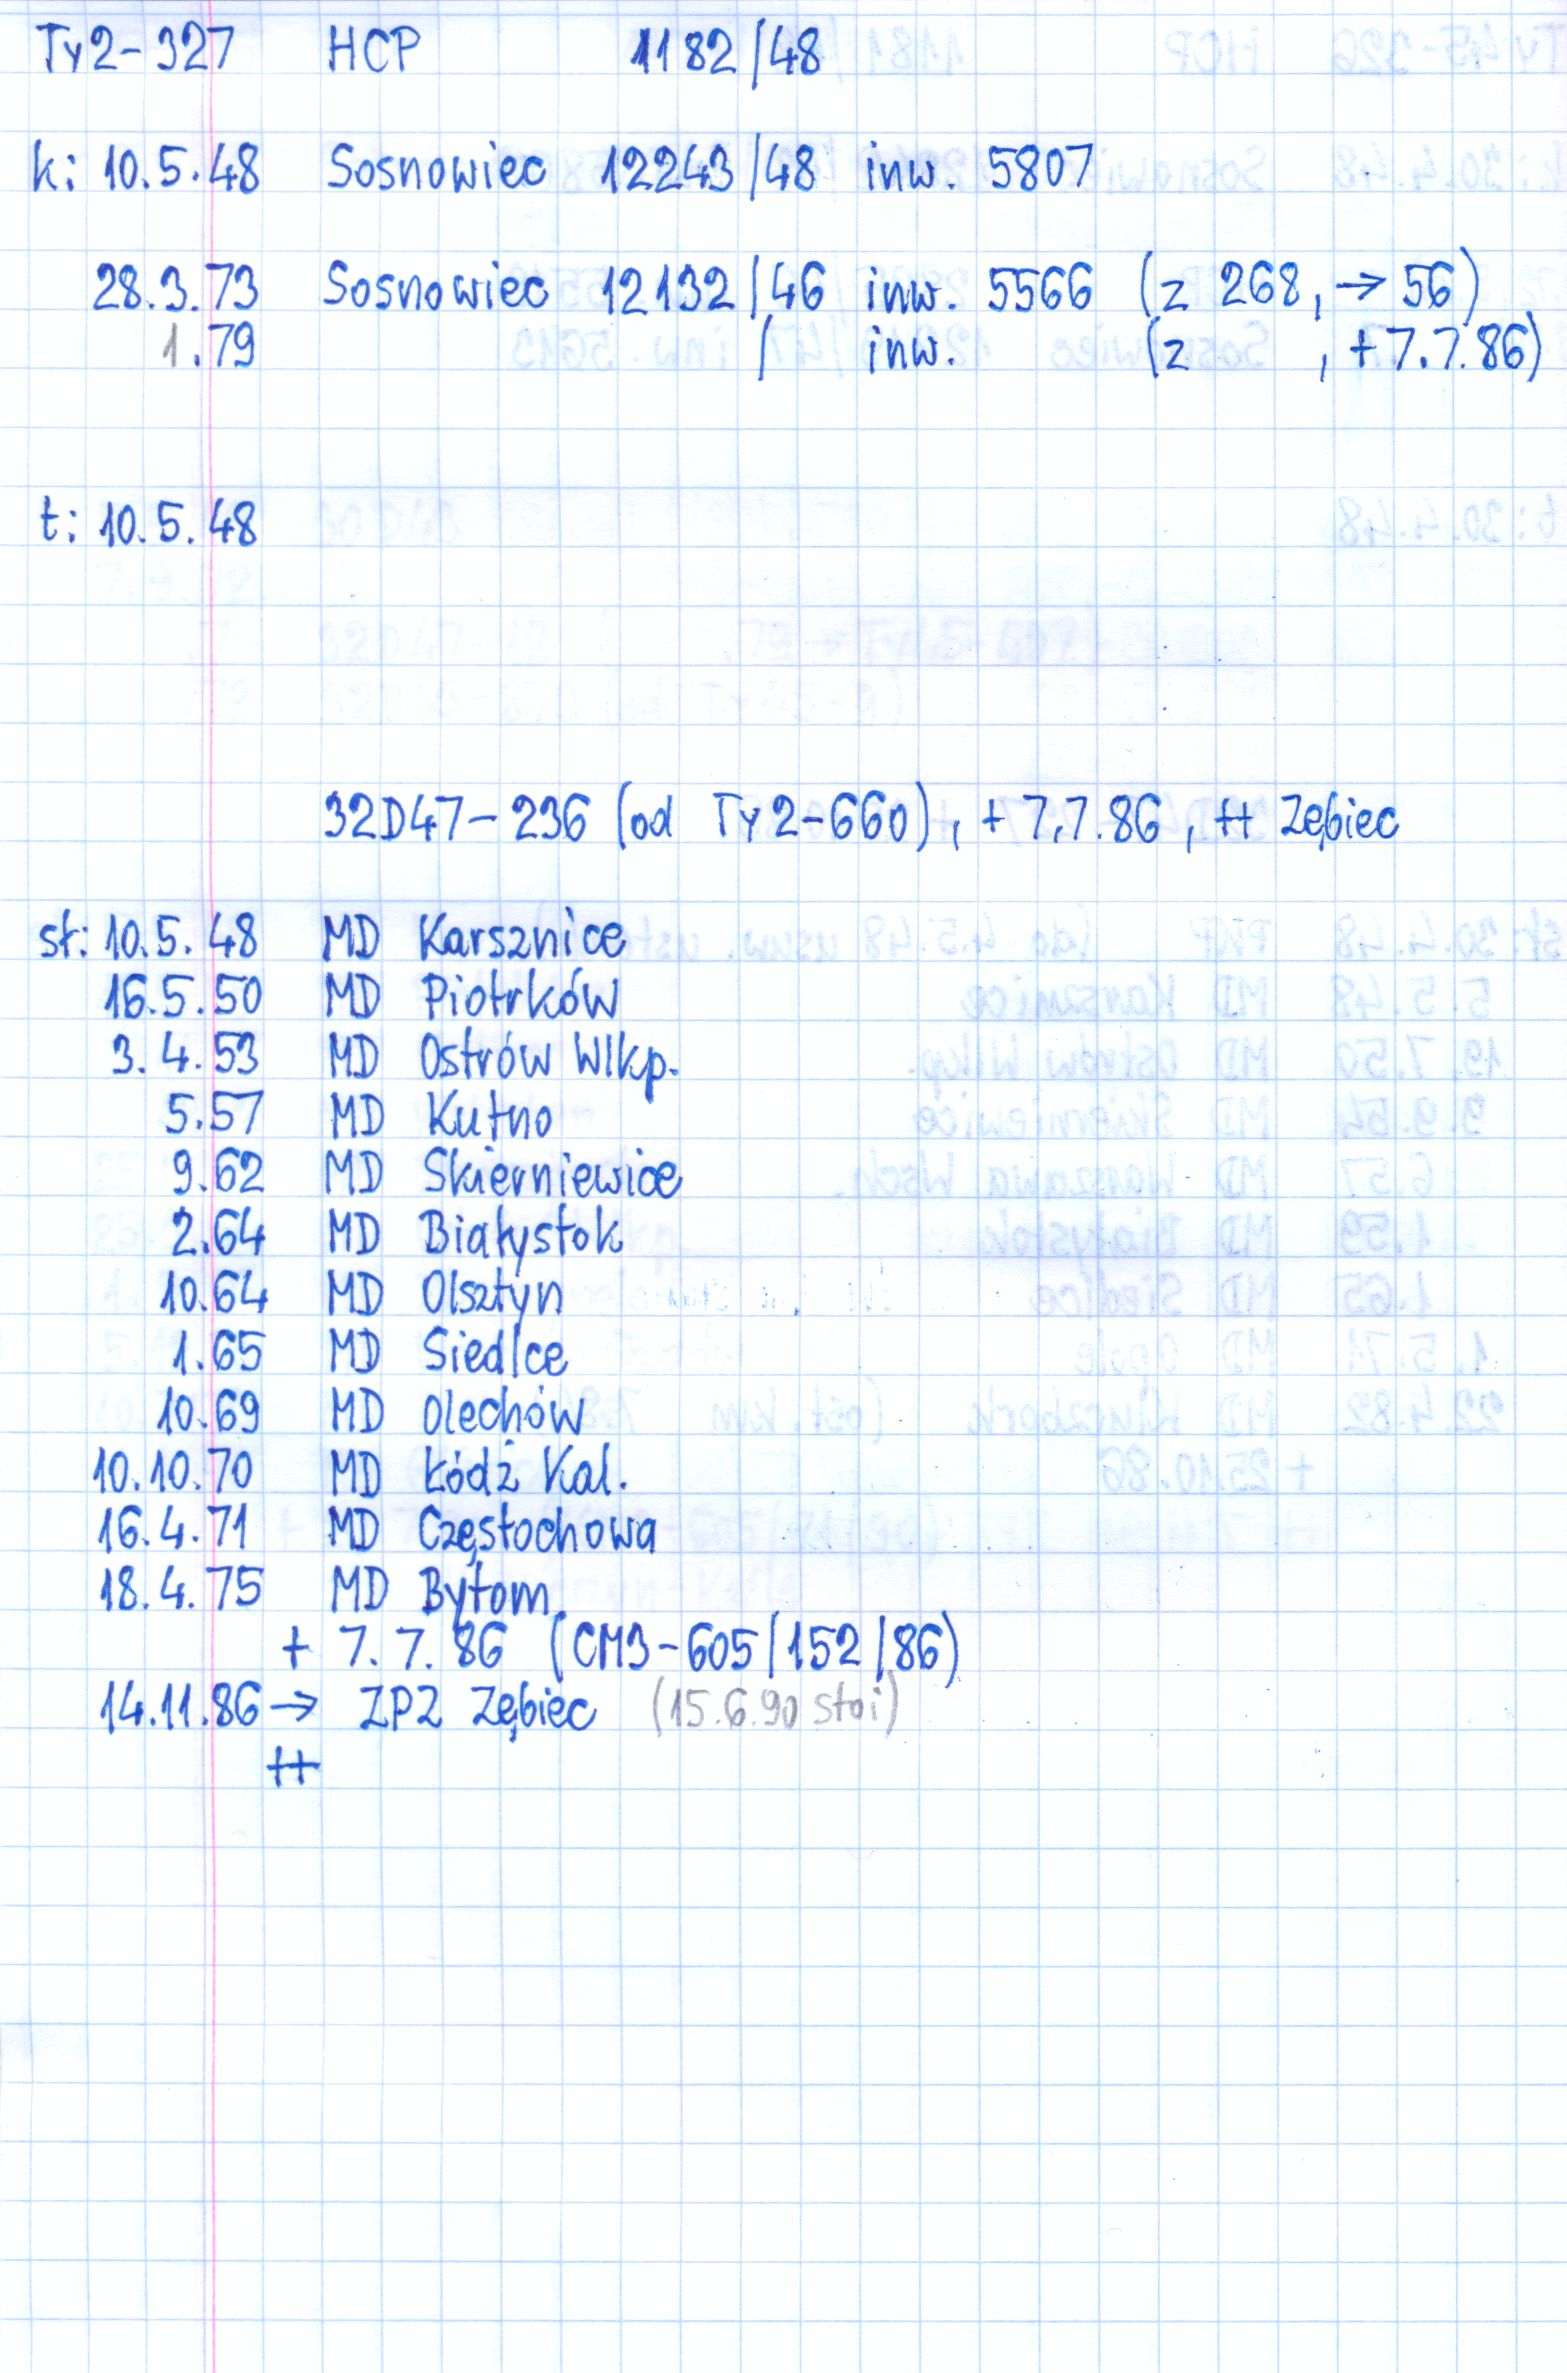 Ty2-327 HCP 1182/48
k: 10.5.48 Sosnowiec 12243/48 inw. 5807
28.3.73 Sosnowiec 12132/46 inw. 5566 (z 268, → 56)
1.79 / inw. (z , + 7.7.86)
t: 10.5.48
32D47-236 (od Ty2-660), + 7.7.86, ++ Zębiec
st: 10.5.48 MD Karsznice
16.5.50 MD Piotrków
3.4.53 MD Ostrów Wlkp.
5.57 MD Kutno
9.62 MD Skierniewice
2.64 MD Białystok
10.64 MD Olsztyn
1.65 MD Siedlce
10.69 MD Olechów
10.10.70 MD Łódź Kal.
16.4.71 MD Częstochowa
18.4.75 MD Bytom
+ 7.7.86 (CM3-605/152/86)
14.11.86 → ZPZ Zębiec (15.6.90 stoi)
++